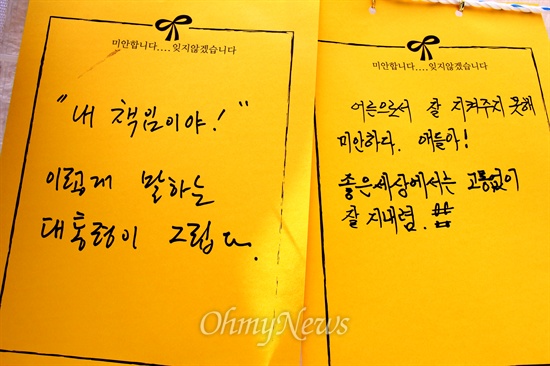 미안합니다....잊지않겠습니다
"내 책임이야!"
이렇게 말하는
대통령이 그립다.
미안합니다....잊지않겠습니다
어른으로서 잘 지켜주지 못해
미안하다. 얘들아!
좋은세상에서는 고통없이
잘 지내렴.
OhmyNews